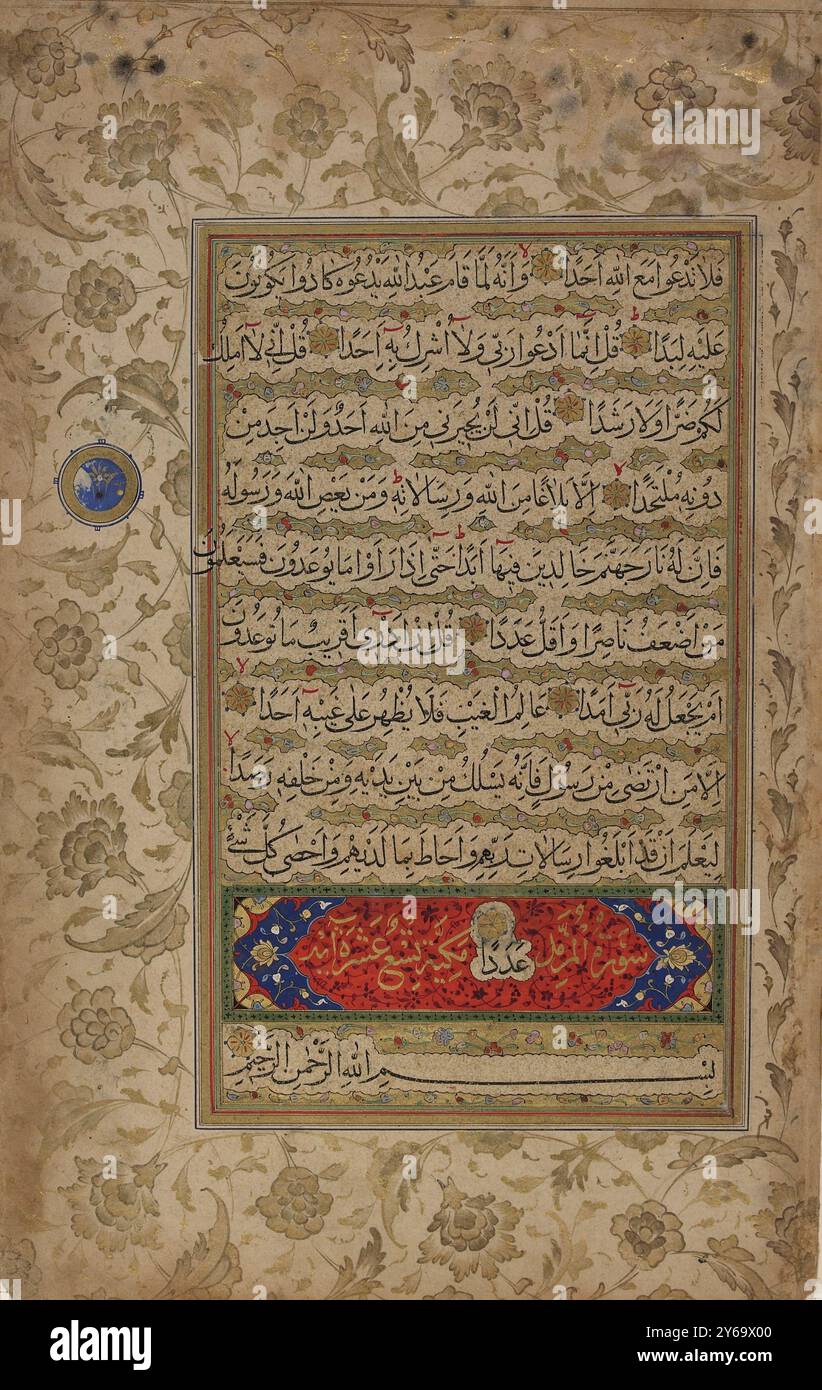 فَلَا تَدْعُوا مَعَ اللّٰهِ اَحَدًا وَاَنَّهُ لَمَّا قَامَ عَبْدُ اللّٰهِ يَدْعُوهُ كَادُوا يَكُونُونَ
عَلَيْهِ لِبَدًا قُلْ اِنَّمَا اَدْعُوا رَبِّي وَلَا اُشْرِكُ بِهِ اَحَدًا قُلْ اِنِّي لَا اَمْلِكُ
لَكُمْ ضَرًّا وَلَا رَشَدًا قُلْ اِنِّي لَنْ يُجِيرَنِي مِنَ اللّٰهِ اَحَدٌ وَلَنْ اَجِدَ مِنْ
دُونِهِ مُلْتَحَدًا اِلَّا بَلَاغًا مِنَ اللّٰهِ وَرِسَالَاتِهِ وَمَنْ يَعْصِ اللّٰهَ وَرَسُولَهُ
فَاِنَّ لَهُ نَارَ جَهَنَّمَ خَالِدِينَ فِيهَا اَبَدًا حَتّٰى اِذَا رَاَوْا مَا يُوعَدُونَ فَسَيَعْلَمُونَ
مَنْ اَضْعَفُ نَاصِرًا وَاَقَلُّ عَدَدًا قُلْ اِنْ اَدْرِي اَقَرِيبٌ مَا تُوعَدُونَ
اَمْ يَجْعَلُ لَهُ رَبِّي اَمَدًا عَالِمُ الْغَيْبِ فَلَا يُظْهِرُ عَلٰى غَيْبِهِ اَحَدًا
اِلَّا مَنِ ارْتَضٰى مِنْ رَسُولٍ فَاِنَّهُ يَسْلُكُ مِنْ بَيْنِ يَدَيْهِ وَمِنْ خَلْفِهِ رَصَدًا
لِيَعْلَمَ اَنْ قَدْ اَبْلَغُوا رِسَالَاتِ رَبِّهِمْ وَاَحَاطَ بِمَا لَدَيْهِمْ وَاَحْصٰى كُلَّ شَيْءٍ
سُورَةُ الْمُزَّمِّلِ عَدَدًا مَكِّيَّةٌ تِسْعَ عَشَرَةَ آيَة
بِسْمِ اللّٰهِ الرَّحْمٰنِ الرَّحِيمِ
alamy
alamy
Image ID: 2Y69X00
www.alamy.com